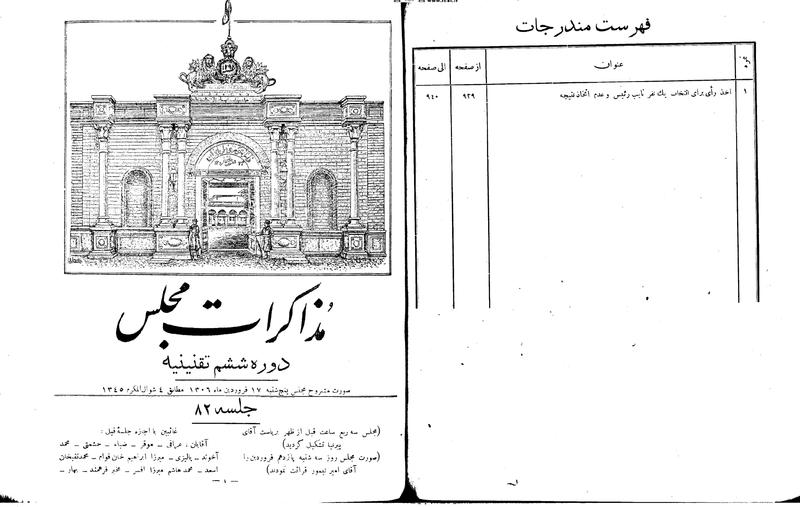 فهرست مندرجات
نمره عنوان از صفحه الی صفحه
۱ اخذ رأی برای انتخاب یك نفر نایب رئیس و عدم اتخاذ نتیجه ۹۳۹ ۹۴۰
مُذاکرات مجلس
دوره ششم تقنینیه
صورت مشروح مجلس پنج‌شنبه ۱۷ فروردین ماه ۱۳۰۶ مطابق ۴ شوال المکرم ۱۳۴۵
جلسه ۸۲
(مجلس سه ربع ساعت قبل از ظهر بریاست آقای
پیرنیا تشکیل گردید)
(صورت مجلس روز سه شنبه پانزدهم فروردین را
آقای امیر تیمور قرائت نمودند)
غائبین با اجازه جلسهٔ قبل :
آقایان : عراقی ـ موقر ـ ضیاء ـ حشمتی ـ محمد
آخوند ـ پالیزی ـ میرزا ابراهیم خان قوام ـ محمدتقیخان
اسعد ـ محمد هاشم میرزا افسر ـ مخبر فرهمند ـ بهار ـ
ـ ۱ ـ